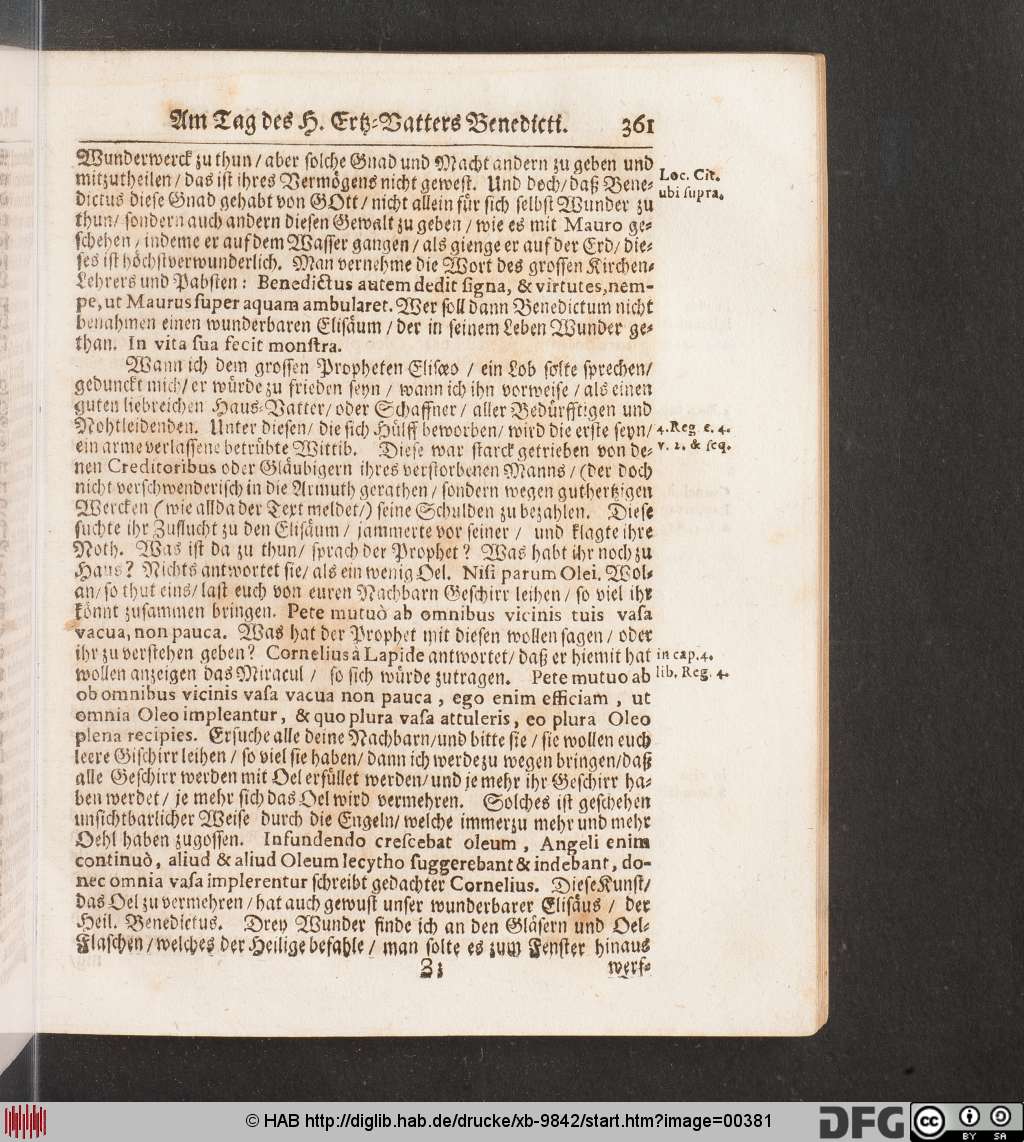 Am Tag des H. Ertz-Vatters Benedicti. 361
Wunderwerck zu thun / aber solche Gnad und Macht andern zu geben und
mitzutheilen / das ist ihres Vermögens nicht gewest. Und doch / daß Bene-
Loc. Cit.
ubi supra.
dictus diese Gnad gehabt von GOtt / nicht allein für sich selbst Wunder zu
thun / sondern auch andern diesen Gewalt zu geben / wie es mit Mauro ge-
schehen / indeme er auf dem Wasser gangen / als gienge er auf der Erd / die-
ses ist höchstverwunderlich. Man vernehme die Wort des grossen Kirchen-
Lehrers und Pabsten: Benedictus autem dedit signa, & virtutes, nem-
pe, ut Maurus super aquam ambularet. Wer soll dann Benedictum nicht
benahmen einen wunderbaren Elisäum / der in seinem Leben Wunder ge-
than. In vita sua fecit monstra.
Wann ich dem grossen Propheten Elisæo / ein Lob solte sprechen /
gedunckt mich / er würde zu frieden seyn / wann ich ihn vorweise / als einen
guten liebreichen Haus-Vatter / oder Schaffner / aller Bedürfftigen und
Nohtleidenden. Unter diesen / die sich Hülff beworben / wird die erste seyn /
4. Reg c. 4.
v. 2. & seq.
ein arme verlassene betrübte Wittib. Diese war starck getrieben von de-
nen Creditoribus oder Gläubigern ihres verstorbenen Manns / (der doch
nicht verschwenderisch in die Armuth gerathen / sondern wegen guthertzigen
Wercken (wie allda der Text meldet /) seine Schulden zu bezahlen. Diese
suchte ihr Zuflucht zu den Elisäum / jammerte vor seiner / und klagte ihre
Noth. Was ist da zu thun / sprach der Prophet? Was habt ihr noch zu
Haus? Nichts antwortet sie / als ein wenig Oel. Nisi parum Olei. Wol-
an / so thut eins / last euch von euren Nachbarn Geschirr leihen / so viel ihr
könnt zusammen bringen. Pete mutuò ab omnibus vicinis tuis vasa
vacua, non pauca. Was hat der Prophet mit diesen wollen sagen / oder
ihr zu verstehen geben? Cornelius à Lapide antwortet / daß er hiemit hat
in cap. 4.
lib. Reg. 4.
wollen anzeigen das Miracul / so sich würde zutragen. Pete mutuo ab
ob omnibus vicinis vasa vacua non pauca, ego enim efficiam, ut
omnia Oleo impleantur, & quo plura vasa attuleris, eo plura Oleo
plena recipies. Ersuche alle deine Nachbarn / und bitte sie / sie wollen euch
leere Gischirr leihen / so viel sie haben / dann ich werde zu wegen bringen / daß
alle Geschirr werden mit Oel erfüllet werden / und je mehr ihr Geschirr ha-
ben werdet / je mehr sich das Oel wird vermehren. Solches ist geschehen
unsichtbarlicher Weise durch die Engeln / welche immerzu mehr und mehr
Oehl haben zugossen. Infundendo crescebat oleum, Angeli enim
continuò, aliud & aliud Oleum lecytho suggerebant & indebant, do-
nec omnia vasa implerentur schreibt gedachter Cornelius. Diese Kunst /
das Oel zu vermehren / hat auch gewust unser wunderbarer Elisäus / der
Heil. Benedictus. Drey Wunder finde ich an den Gläsern und Oel-
Flaschen / welches der Heilige befahle / man solte es zum Fenster hinaus
Z 3 werf-
© HAB http://diglib.hab.de/drucke/xb-9842/start.htm?image=00381
DFG
cc BY SA